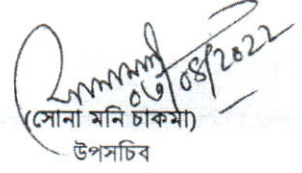 ০৬/০৪/2022
(সোনা মনি চাকমা)
উপসচিব